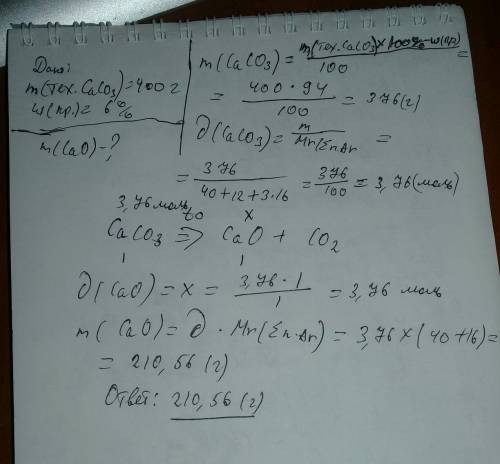 Дано:
m(тех. CaCO3)=400 г
ω(пр.)= 6%
m(CaO)-?
m(CaCO3)= m(тех. CaCO3)×100%-ω(пр.) / 100 =
= 400 · 94 / 100 = 376(г)
∂(CaCO3)= m / Mr(ΣnAr) =
= 376 / 40+12+3·16 = 376 / 100 = 3,76(моль)
3,76 моль x
CaCO3 => CaO + CO2
1 1
∂(CaO) = x = 3,76 · 1 / 1 = 3,76 моль
m( CaO) = ∂ · Mr(Σn·Ar) = 3,76 x (40+16)=
= 210,56 (г)
Ответ: 210,56 (г)